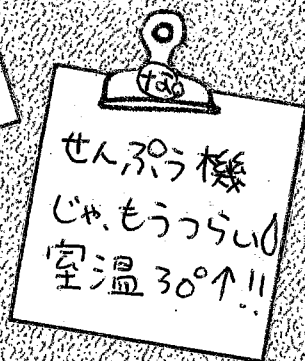 せんぷう機
じゃ、もうつらい
室温30°↑!!